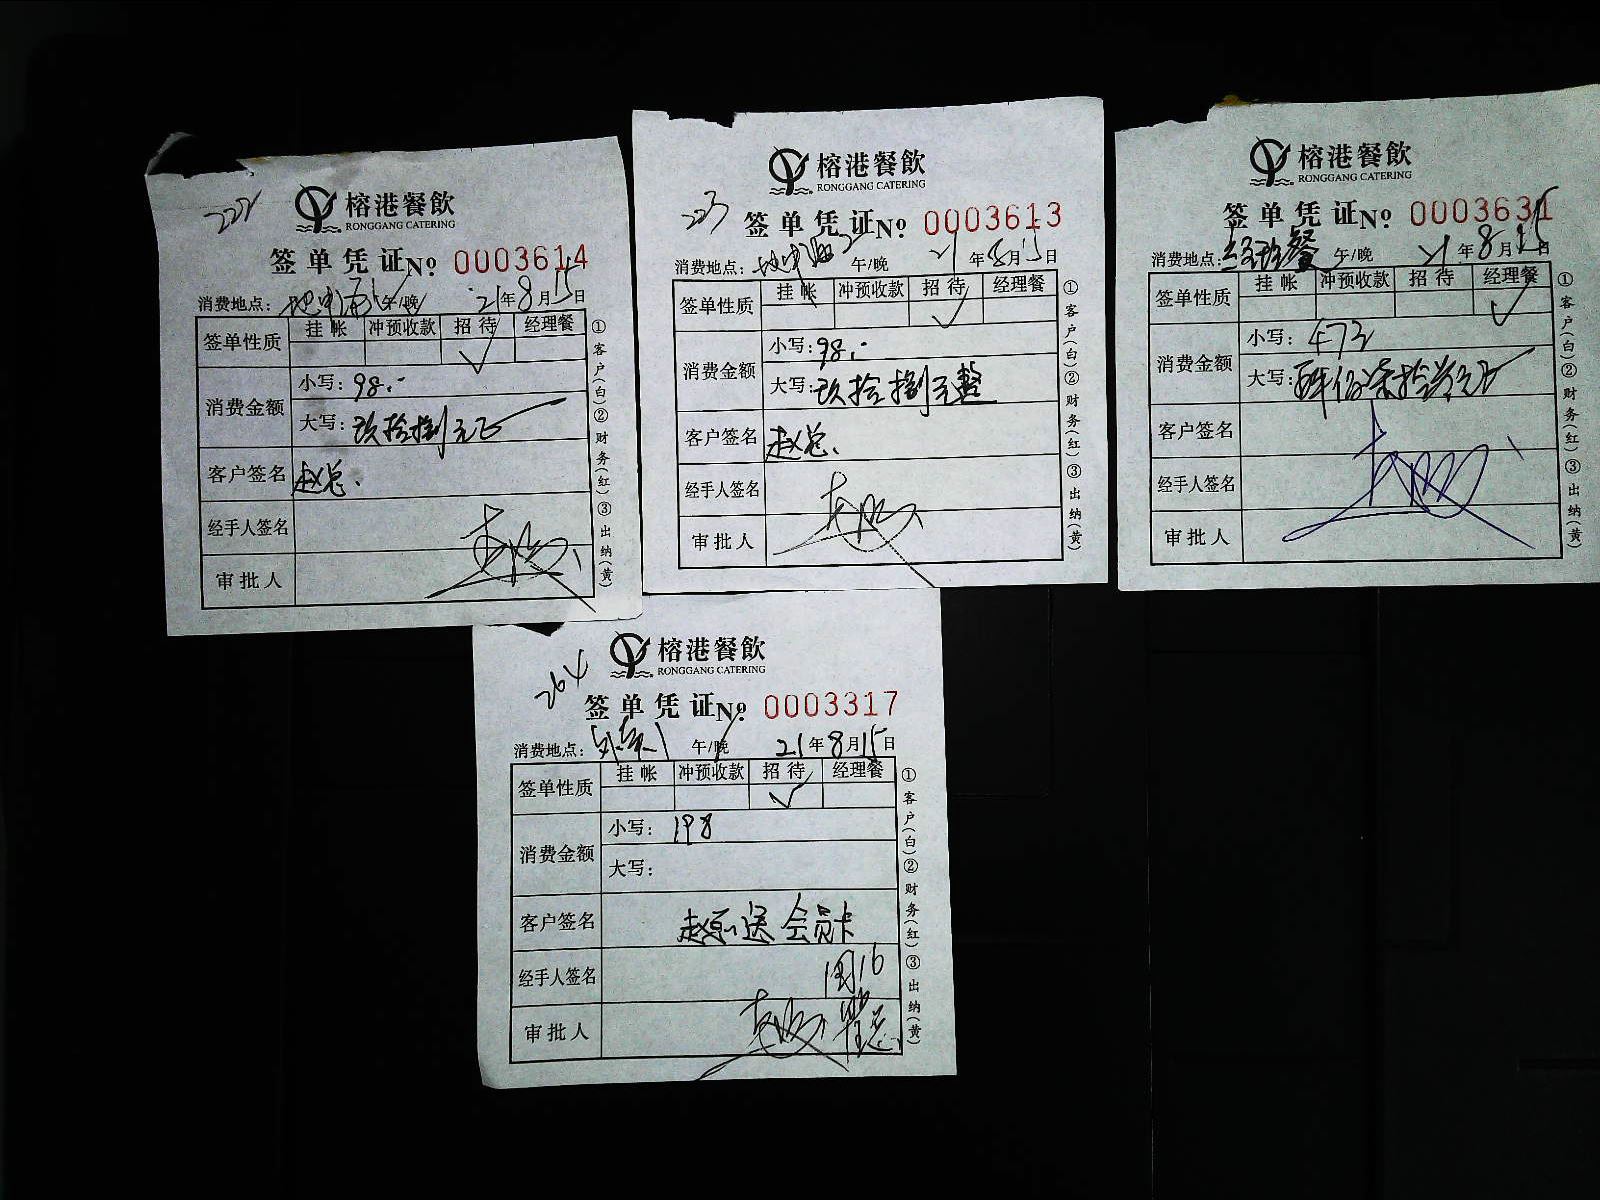 222
榕港餐飲
RONGGANG CATERING
签单凭证№ 0003614
消费地点: 午/晚 21年8月15日
签单性质 挂帐 冲预收款 招待 经理餐
✓
消费金额 小写: 98.-
大写: 玖拾捌元正
客户签名 赵总.
经手人签名
审批人
①客户(白)②财务(红)③出纳(黄)
223
榕港餐飲
RONGGANG CATERING
签单凭证№ 0003613
消费地点: 午/晚 21年8月15日
签单性质 挂帐 冲预收款 招待 经理餐
✓
消费金额 小写: 98.-
大写: 玖拾捌元整
客户签名 赵总.
经手人签名
审批人
①客户(白)②财务(红)③出纳(黄)
榕港餐飲
RONGGANG CATERING
签单凭证№ 0003631
消费地点: 经理餐 午/晚 21年8月15日
签单性质 挂帐 冲预收款 招待 经理餐
✓
消费金额 小写: 473
大写: 肆佰柒拾叁元正
客户签名
经手人签名
审批人
①客户(白)②财务(红)③出纳(黄)
264
榕港餐飲
RONGGANG CATERING
签单凭证№ 0003317
消费地点: 午/晚 21年8月15日
签单性质 挂帐 冲预收款 招待 经理餐
✓
消费金额 小写: 198
大写:
客户签名 赵总送会员卡
经手人签名
审批人
①客户(白)②财务(红)③出纳(黄)